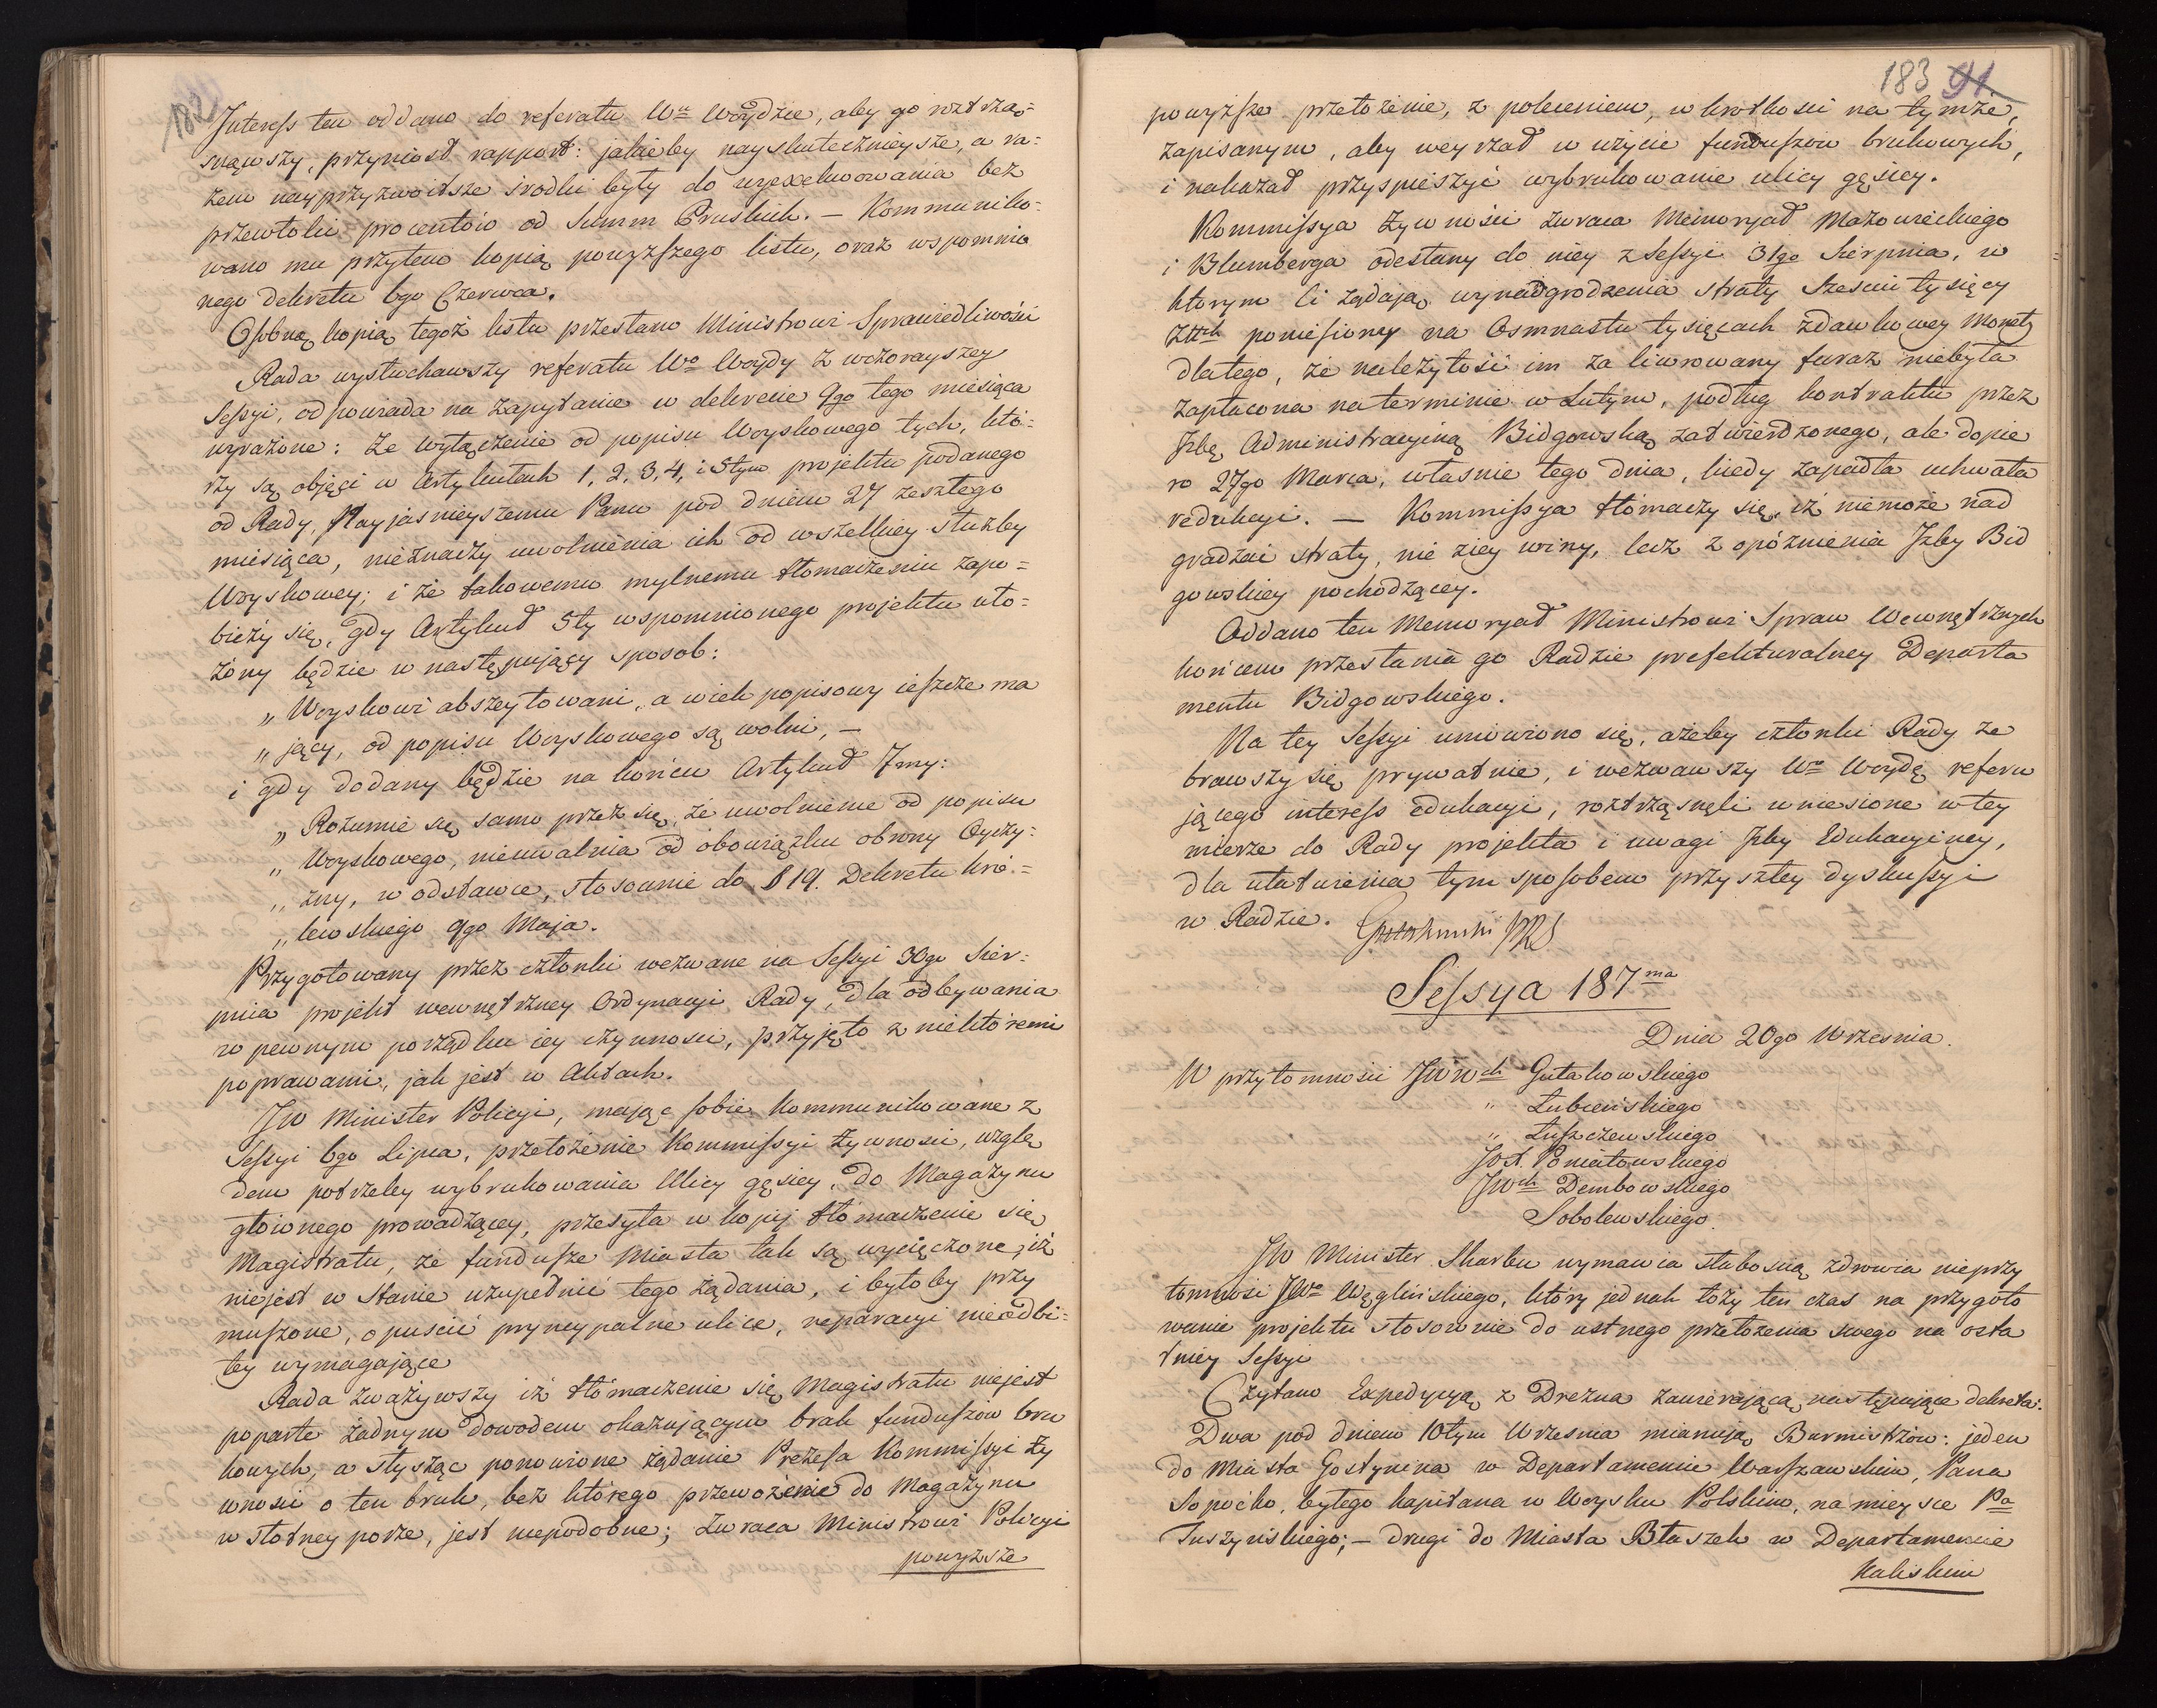 182
Interess ten oddano do referatu Wu Woydzie, aby go roztrzą=
snąwszy, przyniósł rapport: jakieby nayskutecznieysze, a ra=
zem nayprzyzwoitsze srodki były do wyexekwowania bez
przewłoki procentów od Summ Pruskich. — Kommuniko=
wano mu przytem kopią powyższego listu, oraz wspomnio
nego dekretu 6go Czerwca.
Osobną kopią tegoż listu przesłano Ministrowi Sprawiedliwości
Rada wysłuchawszy referatu Wo Woydy z wczorayszey
Sessyi, odpowiada na zapytanie w dekrecie 9go tego miesiąca
wyrażone: Że wyłączenie od popisu Woyskowego tych, któ=
rzy są objęci w Artykułach 1, 2, 3, 4, i 5tym projektu podanego
od Rady, Nayjasnieyszemu Panu pod dniem 27 zeszłego
miesiąca, nieznaczy uwolnienia ich od wszelkiey służby
Woyskowey; i że takowemu mylnemu tłomaczeniu zapo=
bieży się, gdy Artykuł 5ty wspomnionego projektu uło=
żony będzie w następujący sposob:
„ Woyskowi abszeytowani, a wiek popisowy ieszcze ma
„ jący, od popisu Woyskowego są wolni, —
i gdy dodany będzie na końcu Artykuł 7my:
„ Rozumie się samo przez się, że uwolnienie od popisu
„ Woyskowego, nieuwalnia od obowiązku obrony Oyczy=
„ zny, w odstawce, stosownie do § 19. Dekretu kró=
„ lewskiego 9go Maja.
Przygotowany przez członki wezwane na Sessyi 30go Sier=
pnia projekt wewnętrzney Ordynacyi Rady, dla odbywania
w pewnym porządku iey czynności, przyjęto z niektóremi
poprawami, jak jest w Aktach.
JW Minister Policyi, mając sobie kommunikowane z
Sessyi 6go Lipca, przełożenie Kommissyi Żywnosci, wzglę
dem potrzeby wybrukowania Ulicy gęsiey, do Magazynu
głównego prowadzącey, przesyła w kopij tłómaczenie się
Magistratu, że fundusze Miasta tak są wycięczone, iż
niejest w Stanie uzupełnić tego żądania, i byłoby przy
muszone, opuścić pryncypalne ulice, reparacyi nieodbi=
ty wymagające
Rada zważywszy iż tłómaczenie się Magistratu niejest
poparte żadnym dowodem okazującym brak funduszów bru
kowych, a słysząc ponowione żądanie Prezesa Kommissyi Ży
wnosci o ten bruk, bez którego przewożenie do Magazynu
w słotney porze, jest niepodobne; zwraca Ministrowi Policyi
powyższe
183 91.
powyższe przełożenie, z poleceniem, w krotkosci na tymże,
zapisanym, aby weyrzał w użycie funduszow brukowych,
i nakazał przyspieszyć wybrukowanie ulicy gęsiey.
Kommissya Żywności zwraca Memoryał Mazowieckiego
i Blumberga odesłany do niey z Sessyi 31go Sierpnia, w
ktorym Ci żądają wynadgrodzenia straty Szesciu tysięcy
Złtch poniesiony na Osmnastu tysiącach zdawkowey Monety
dlatego, że należytość im za liwrowany furaz niebyła
zapłacona na terminie w Lutym, podług kontraktu przez
Izbę Administracyiną Bidgowską zatwierdzonego, ale dopie
ro 27go Marca, własnie tego dnia, kiedy zapadła uchwała
redukcyi. — Kommissya tłómaczy się, iż niemoże nad
gradzać straty, nie z iey winy, lecz z opóźnienia Izby Bid
gowskiey pochodzącey.
Oddano ten Memoryał Ministrowi Spraw Wewnętrznych
końcem przesłania go Radzie prefekturalney Departa
mentu Bidgowskiego.
Na tey Sessyi umówiono się, ażeby członki Rady ze
brawszy się prywatnie, i wezwawszy Wo Woydę referu
jącego interess edukacyi, roztrząsnęli wniesione w tey
mierze do Rady projekta i uwagi Izby Edukacyiney,
dla ułatwienia tym sposobem przyszłey dyskussyi
w Radzie.
Sessya 187ma
Dnia 20go Wrzesnia.
W przytomnosci JWWch Gutakowskiego
" Łubieńskiego
" Łuszczewskiego
JOX. Poniatowskiego
JWch Dembowskiego
Sobolewskiego.
JW Minister Skarbu wymawia słabością zdrowia nieprzy
tomność JWo Węgleńskiego, który jednak łoży ten czas na przygoto
wanie projektu stosownie do ustnego przełożenia swego na osta
tniey Sessyi
Czytano Expedycyą z Drezna zawierającą następujące dekreta:
Dwa pod dniem 10tym Wrzesnia mianują Burmistrzów: jeden
do Miasta Gostynina w Departamencie Warszawskim, Pana
Sopoćko, byłego kapitana w Woysku Polskim, na mieysce Pa
Tuszyńskiego; — drugi do Miasta Błaszek w Departamencie
Kaliskim